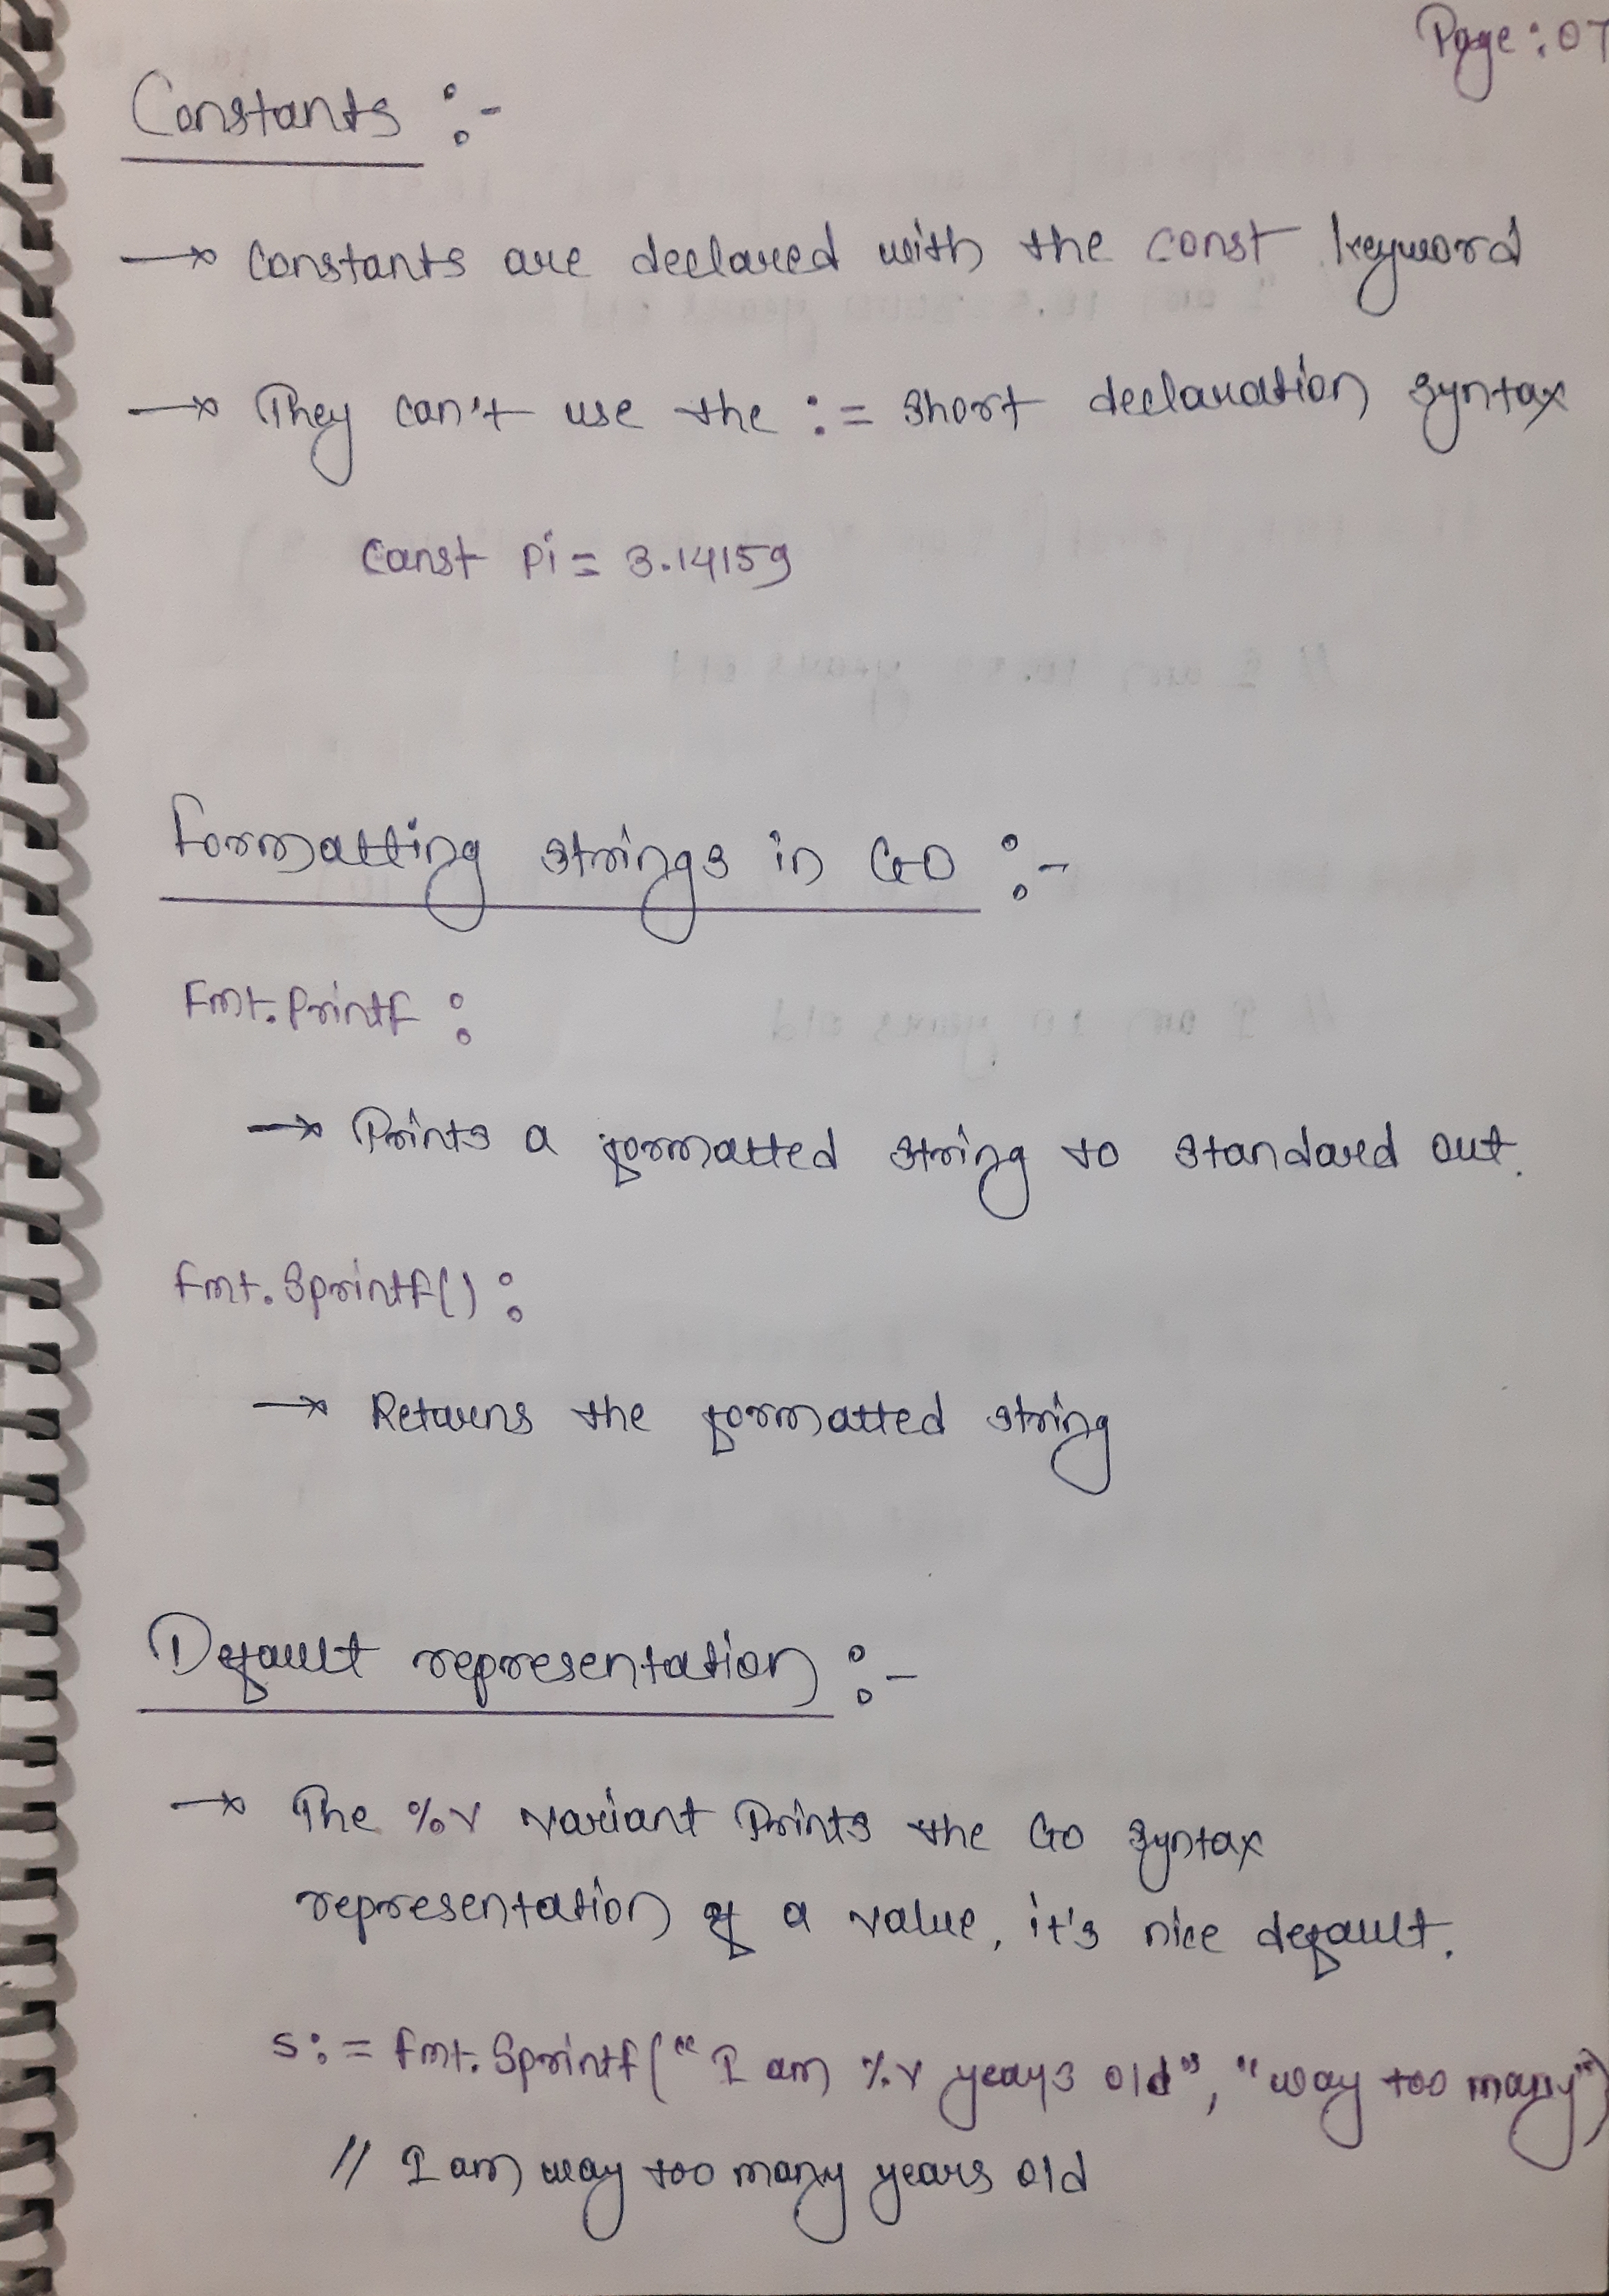 Page: 07
Constants :-
→ Constants are declared with the const keyword
→ They can't use the := short declaration syntax
Const Pi = 3.14159
Formatting strings in GO :-
Fmt.Printf :
→ Prints a formatted string to standard out.
fmt.Sprintf() :
→ Returns the formatted string
Default representation :-
→ The %v variant Prints the Go syntax
representation of a value, it's nice default.
s := fmt.Sprintf("I am %v years old", "way too many")
// I am way too many years old